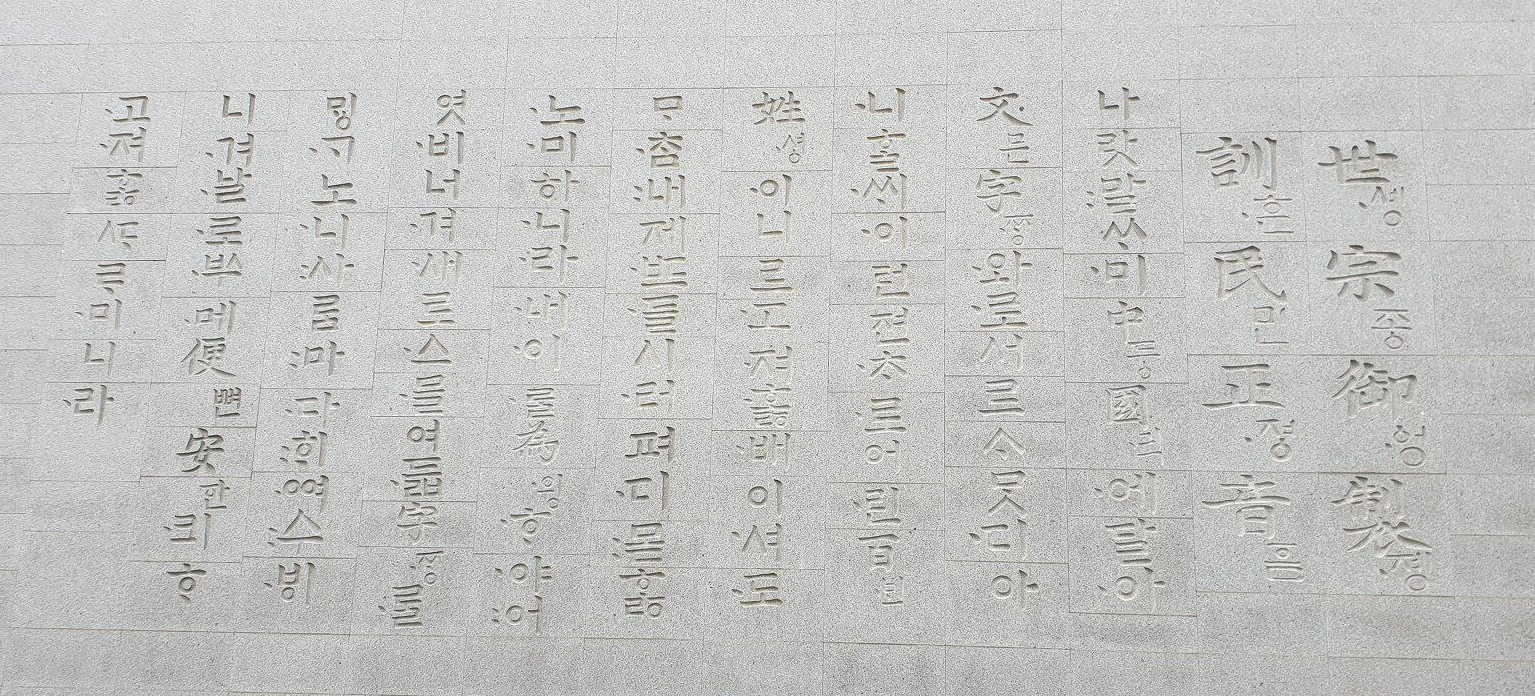 世·솅宗종御·엉製·졩
訓·훈民민正·졍音ᅙᅳᆷ
나·랏:말ᄊᆞ·미中듕國·귁·에달·아
文문字·ᄍᆞᆼ·와·로서르ᄉᆞᄆᆞᆺ·디아
·니ᄒᆞᆯ·ᄊᆡ·이런젼·ᄎᆞ·로어·린百·ᄇᆡᆨ
姓·셩·이니르·고·져·호ᇙ·배이·셔·도
ᄆᆞ·ᄎᆞᆷ:내제·ᄠᅳ·들시·러펴·디:몯ᄒᆞᇙ
·노·미하·니·라·내·이·ᄅᆞᆯ為·윙·ᄒᆞ·야:어
엿·비너·겨·새·로·스·믈여·듧字·ᄍᆞᆼ·ᄅᆞᆯ
ᄆᆡᇰ·ᄀᆞ노·니:사ᄅᆞᆷ:마·다:ᄒᆡ·ᅇᅧ:수·ᄫᅵ
니·겨·날·로·ᄡᅮ·메便뼌安ᅙᅡᆫ·킈ᄒᆞ
·고·져ᄒᆞᇙᄯᆞᄅᆞ·미니·라